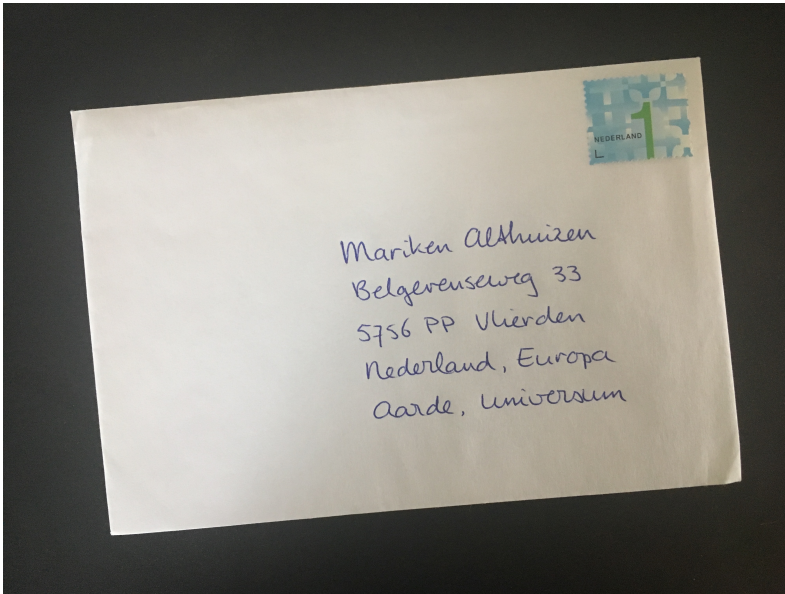 NEDERLAND 1
L
Mariken Althuizen
Belgerenseweg 33
5756 PP Vlierden
Nederland, Europa
Aarde, Universum